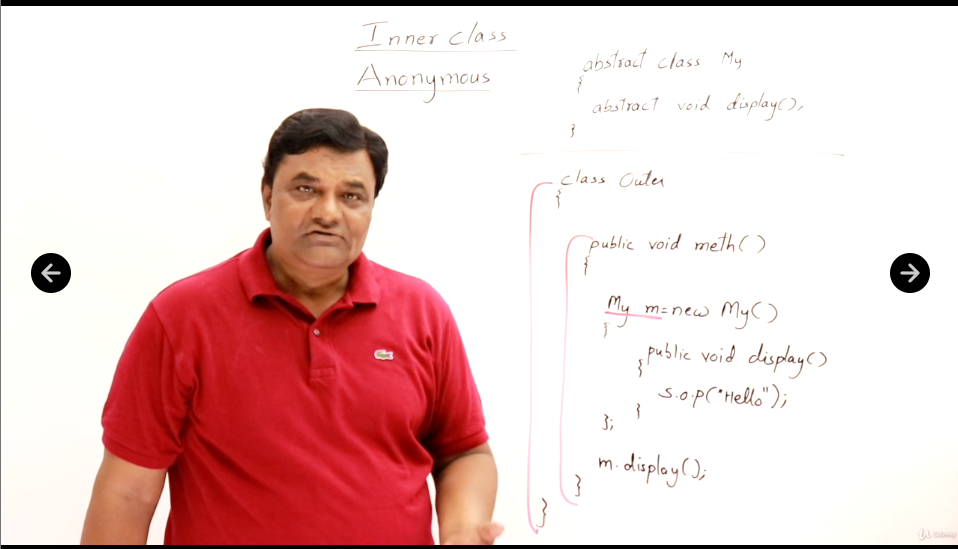 Inner class
Anonymous
abstract class My
{
abstract void display();
}
class Outer
{
public void meth()
{
My m=new My()
{
public void display()
{
S.O.P("Hello");
}
};
m.display();
}
}
Udemy